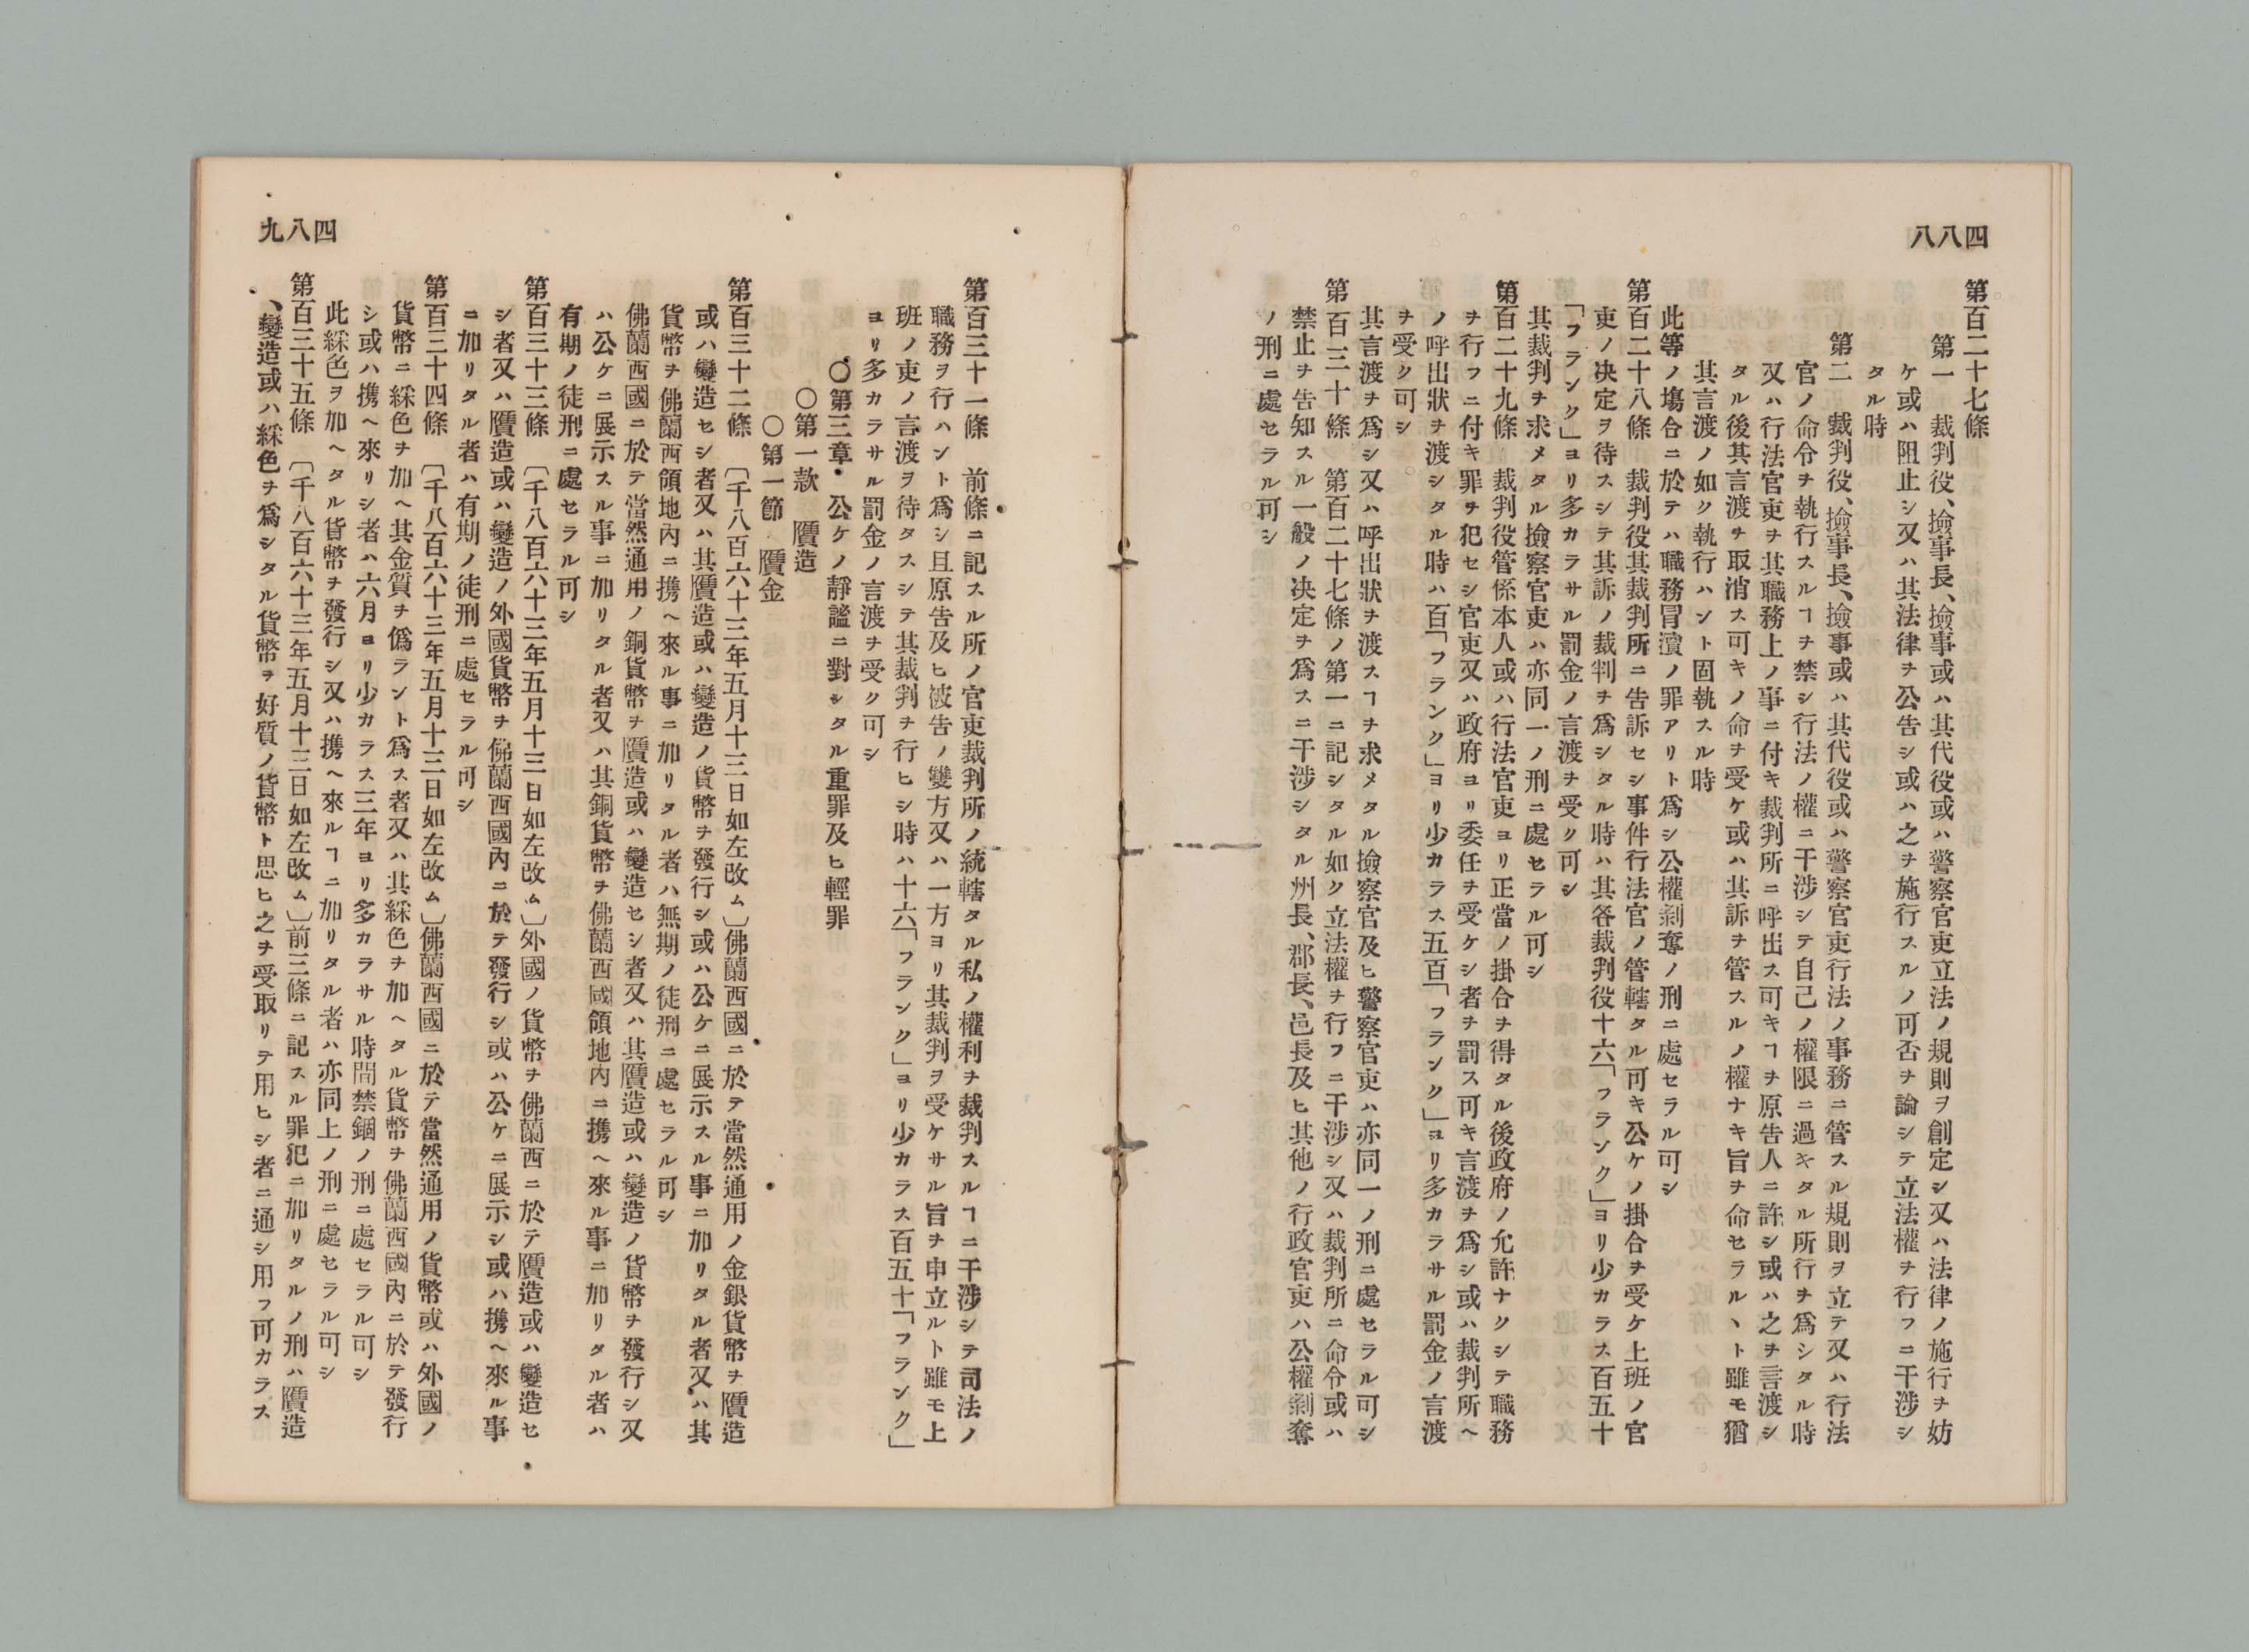 四八八
第百二十七條
第一　裁判役、撿事長、撿事或ハ其代役或ハ警察官吏立法ノ規則ヲ創定シ又ハ法律ノ施行ヲ妨
ケ或ハ阻止シ又ハ其法律ヲ公告シ或ハ之ヲ施行スルノ可否ヲ論シテ立法權ヲ行フニ干渉シ
タル時
第二　裁判役、撿事長、撿事或ハ其代役或ハ警察官吏行法ノ事務ニ管スル規則ヲ立テ又ハ行法
官ノ命令ヲ執行スルヿヲ禁シ行法ノ權ニ干渉シテ自己ノ權限ニ過キタル所行ヲ爲シタル時
又ハ行法官吏ヲ其職務上ノ事ニ付キ裁判所ニ呼出ス可キヿヲ原告人ニ許シ或ハ之ヲ言渡シ
タル後其言渡ヲ取消ス可キノ命ヲ受ケ或ハ其訴ヲ管スルノ權ナキ旨ヲ命セラルヽト雖モ猶
其言渡ノ如ク執行ハント固執スル時
此等ノ塲合ニ於テハ職務冒瀆ノ罪アリト爲シ公權剝奪ノ刑ニ處セラル可シ
第百二十八條　裁判役其裁判所ニ告訴セシ事件行法官ノ管轄タル可キ公ケノ掛合ヲ受ケ上班ノ官
吏ノ决定ヲ待スシテ其訴ノ裁判ヲ爲シタル時ハ其各裁判役十六「フランク」ヨリ少カラス百五十
「フランク」ヨリ多カラサル罰金ノ言渡ヲ受ク可シ
其裁判ヲ求メタル撿察官吏ハ亦同一ノ刑ニ處セラル可シ
第百二十九條　裁判役管係本人或ハ行法官吏ヨリ正當ノ掛合ヲ得タル後政府ノ允許ナクシテ職務
ヲ行フニ付キ罪ヲ犯セシ官吏又ハ政府ヨリ委任ヲ受ケシ者ヲ罰ス可キ言渡ヲ爲シ或ハ裁判所ヘ
ノ呼出狀ヲ渡シタル時ハ百「フランク」ヨリ少カラス五百「フランク」ヨリ多カラサル罰金ノ言渡
ヲ受ク可シ
其言渡ヲ爲シ又ハ呼出狀ヲ渡スヿヲ求メタル撿察官及ヒ警察官吏ハ亦同一ノ刑ニ處セラル可シ
第百三十條　第百二十七條ノ第一ニ記シタル如ク立法權ヲ行フニ干渉シ又ハ裁判所ニ命令或ハ
禁止ヲ告知スル一般ノ决定ヲ爲スニ干渉シタル州長、郡長、邑長及ヒ其他ノ行政官吏ハ公權剝奪
ノ刑ニ處セラル可シ
四八九
第百三十一條　前條ニ記スル所ノ官吏裁判所ノ統轄タル私ノ權利ヲ裁判スルヿニ干渉シテ司法ノ
職務ヲ行ハント爲シ且原告及ヒ被告ノ雙方又ハ一方ヨリ其裁判ヲ受ケサル旨ヲ申立ルト雖モ上
班ノ吏ノ言渡ヲ待タスシテ其裁判ヲ行ヒシ時ハ十六「フランク」ヨリ少カラス百五十「フランク」
ヨリ多カラサル罰金ノ言渡ヲ受ク可シ
〇第三章　公ケノ靜謐ニ對シタル重罪及ヒ輕罪
〇第一款　贋造
〇第一節　贋金
第百三十二條　〔千八百六十三年五月十三日如左改ム〕佛蘭西國ニ於テ當然通用ノ金銀貨幣ヲ贋造
或ハ變造セシ者又ハ其贋造或ハ變造ノ貨幣ヲ發行シ或ハ公ケニ展示スル事ニ加リタル者又ハ其
貨幣ヲ佛蘭西領地內ニ携ヘ來ル事ニ加リタル者ハ無期ノ徒刑ニ處セラル可シ
佛蘭西國ニ於テ當然通用ノ銅貨幣ヲ贋造或ハ變造セシ者又ハ其贋造或ハ變造ノ貨幣ヲ發行シ又
ハ公ケニ展示スル事ニ加リタル者又ハ其銅貨幣ヲ佛蘭西國領地內ニ携ヘ來ル事ニ加リタル者ハ
有期ノ徒刑ニ處セラル可シ
第百三十三條　〔千八百六十三年五月十三日如左改ム〕外國ノ貨幣ヲ佛蘭西ニ於テ贋造或ハ變造セ
シ者又ハ贋造或ハ變造ノ外國貨幣ヲ佛蘭西國內ニ於テ發行シ或ハ公ケニ展示シ或ハ携ヘ來ル事
ニ加リタル者ハ有期ノ徒刑ニ處セラル可シ
第百三十四條　〔千八百六十三年五月十三日如左改ム〕佛蘭西國ニ於テ當然通用ノ貨幣或ハ外國ノ
貨幣ニ綵色ヲ加ヘ其金質ヲ僞ラント爲ス者又ハ其綵色ヲ加ヘタル貨幣ヲ佛蘭西國內ニ於テ發行
シ或ハ携ヘ來リシ者ハ六月ヨリ少カラス三年ヨリ多カラサル時間禁錮ノ刑ニ處セラル可シ
此綵色ヲ加ヘタル貨幣ヲ發行シ又ハ携ヘ來ルヿニ加リタル者ハ亦同上ノ刑ニ處セラル可シ
第百三十五條　〔千八百六十三年五月十三日如左改ム〕前三條ニ記スル罪犯ニ加リタルノ刑ハ贋造
、變造或ハ綵色ヲ爲シタル貨幣ヲ好質ノ貨幣ト思ヒ之ヲ受取リテ用ヒシ者ニ通シ用フ可カラス